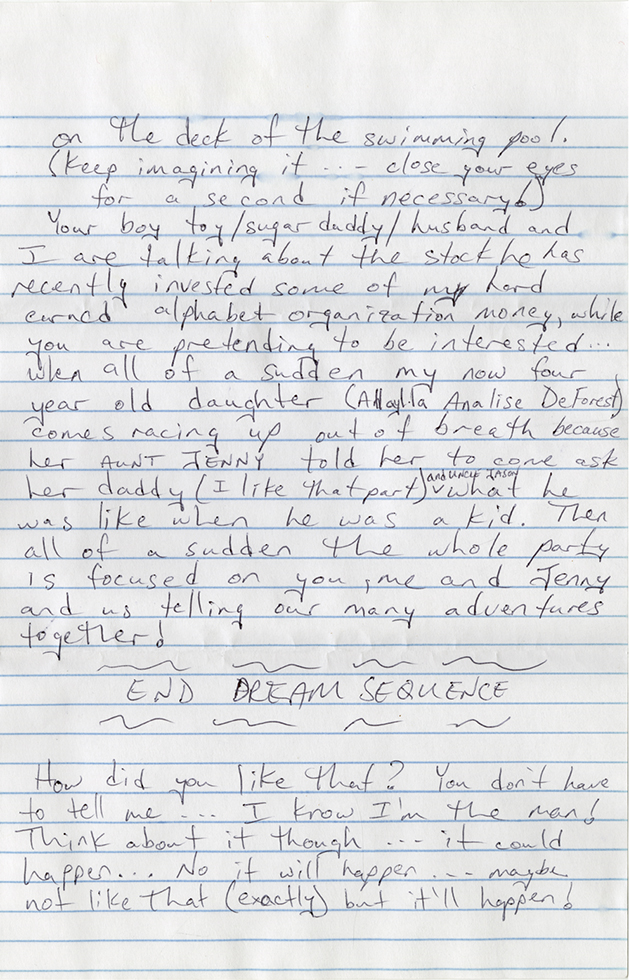 on the deck of the swimming pool.
(Keep imagining it --- close your eyes
for a second if necessary!)
Your boy toy/sugar daddy/husband and
I are talking about the stock he has
recently invested some of my hard
earned alphabet organization money, while
you are pretending to be interested...
when all of a sudden my now four
year old daughter (Analise DeForest)
comes racing up out of breath because
her AUNT JENNY told her to come ask
her daddy (I like that part) and uncle JASON what he
was like when he was a kid. Then
all of a sudden the whole party
is focused on you, me and Jenny
and us telling our many adventures
together!
END DREAM SEQUENCE
How did you like that? You don't have
to tell me --- I know I'm the man!
Think about it though --- it could
happen... No it will happen --- maybe
not like that (exactly) but it'll happen!